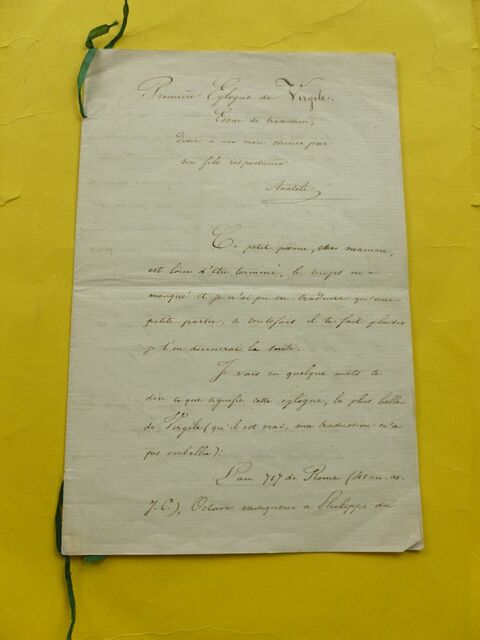 Première Eglogue de Virgile.
Essai de traduction,
dédié à une mère chérie par
son fils respectueux
Anatole
Ce petit poème, chère maman,
est loin d'être terminé, le temps m'a
manqué et je n'ai pu en traduire qu'une
petite partie, si toutefois il te fait plaisir
je t'en donnerai la suite.
Je vais en quelque mots te
dire ce que signifie cette eglogue, la plus belle
de Virgile (qu'il est vrai, ma traduction n'a
pas embellie):
L'an 717 de Rome (
J.C.), Octave vainqueur à Philippe du